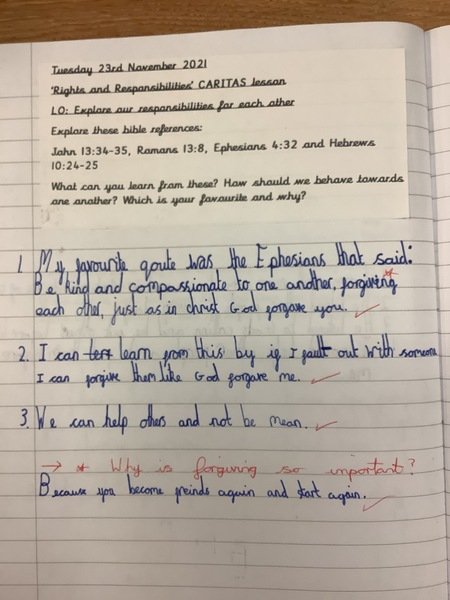 Tuesday 23rd November 2021
'Rights and Responsibilities' CARITAS lesson
LO: Explore our responsibilities for each other
Explore these bible references:
John 13:34-35, Romans 13:8, Ephesians 4:32 and Hebrews
10:24-25
What can you learn from these? How should we behave towards
one another? Which is your favourite and why?
1. My favourite qoute was the Ephesians that said:
Be kind and compassionate to one another, forgiving*
each other, just as in christ God forgave you. ✓
2. I can learn from this by if I fault out with someone
I can forgive them like God forgave me. ✓
3. We can help others and not be mean. ✓
→ * Why is forgiving so important?
Because you become freinds again and start again. ✓